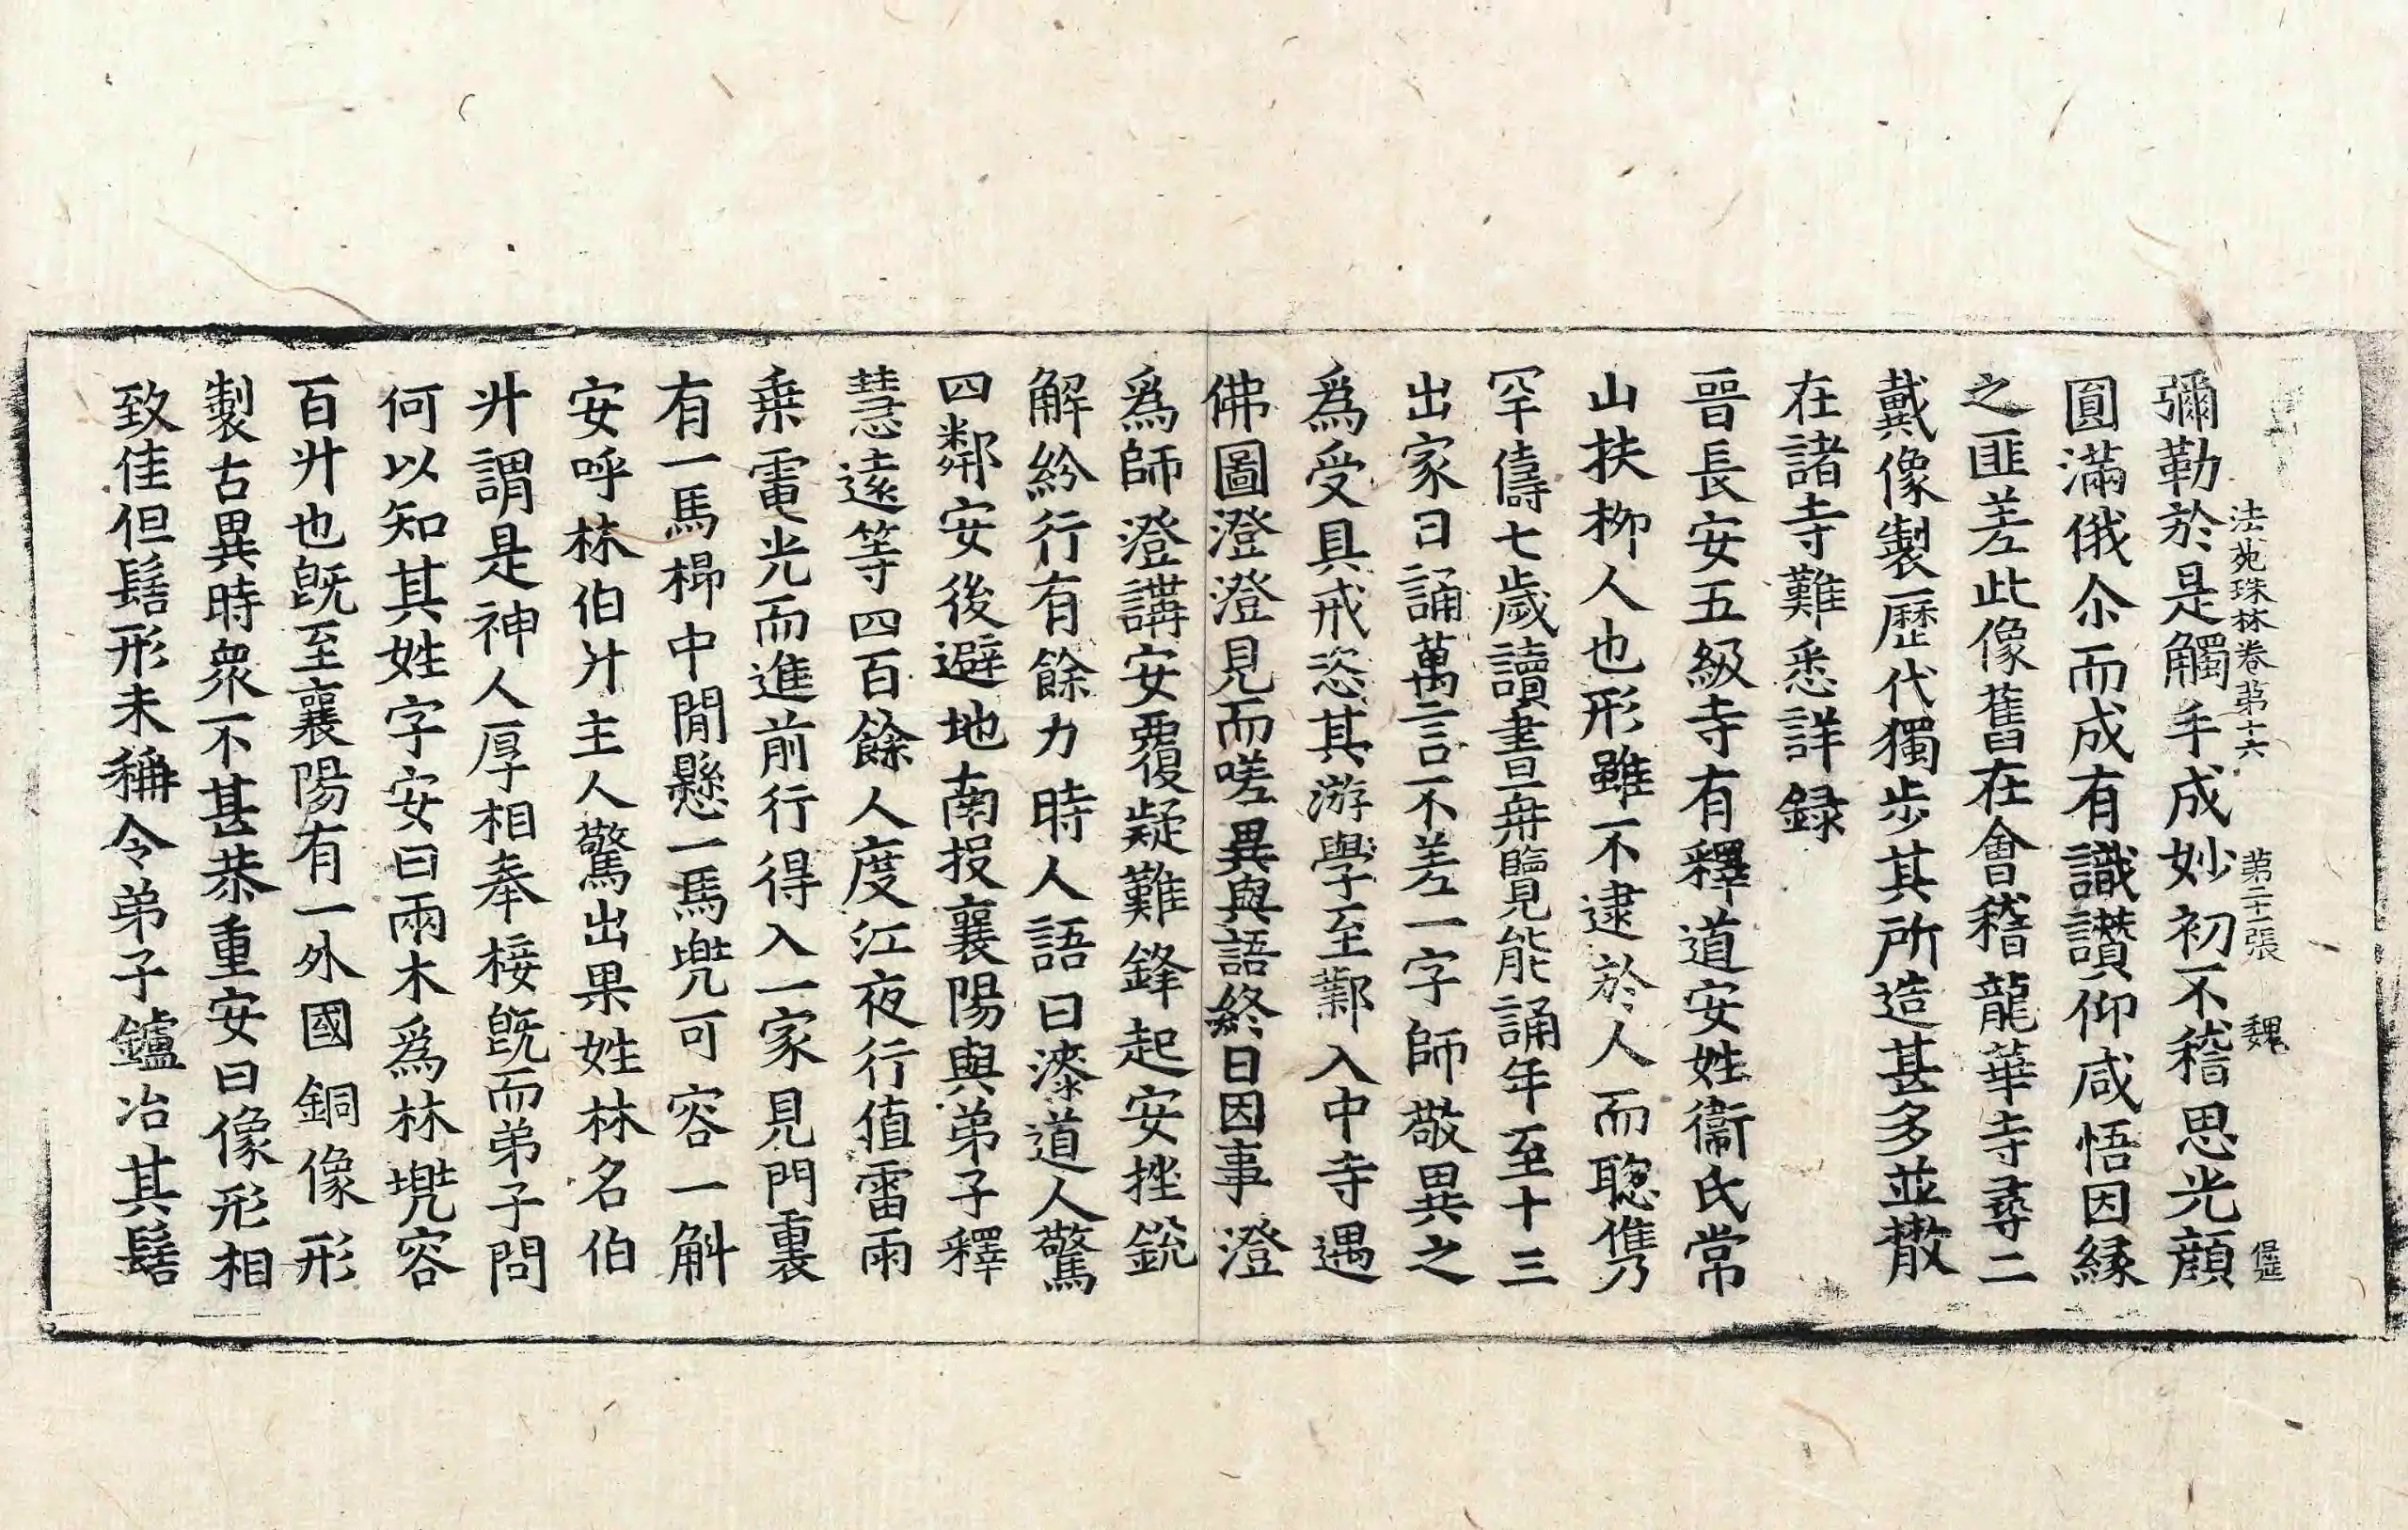 彌勒於是觸手成妙初不稽思光顔
法苑珠林卷第十六 第二十張 魏
圓滿俄尒而成有識讃仰咸悟因緣
之匪差此像舊在會稽龍華寺尋二
戴像製歷代獨步其所造甚多並散
在諸寺難悉詳録
晉長安五級寺有釋道安姓衞氏常
山扶柳人也形雖不逮於人而聦儁
罕儔七歲讀書再覽能誦年至十三
出家日誦萬言不差一字師敬異之
爲受具戒恣其游學至鄴入中寺遇
佛圖澄澄見而嗟異與語終日因事澄
爲師澄講安覆疑難鋒起安挫銳
解紛行有餘力時人語曰漆道人驚
四鄰安後避地南投襄陽與弟子釋
慧遠等四百餘人度江夜行值雷雨
乗電光而進前行得入一家見門裏
有一馬㭿中閒懸一馬兠可容一斛
安呼林伯升主人驚出果姓林名伯
升謂是神人厚相奉接旣而弟子問
何以知其姓字安曰兩木爲林兠容
百升也旣至襄陽有一外國銅像形
製古異時衆不甚恭重安曰像形相
致佳但髻形未稱令弟子鑪冶其髻